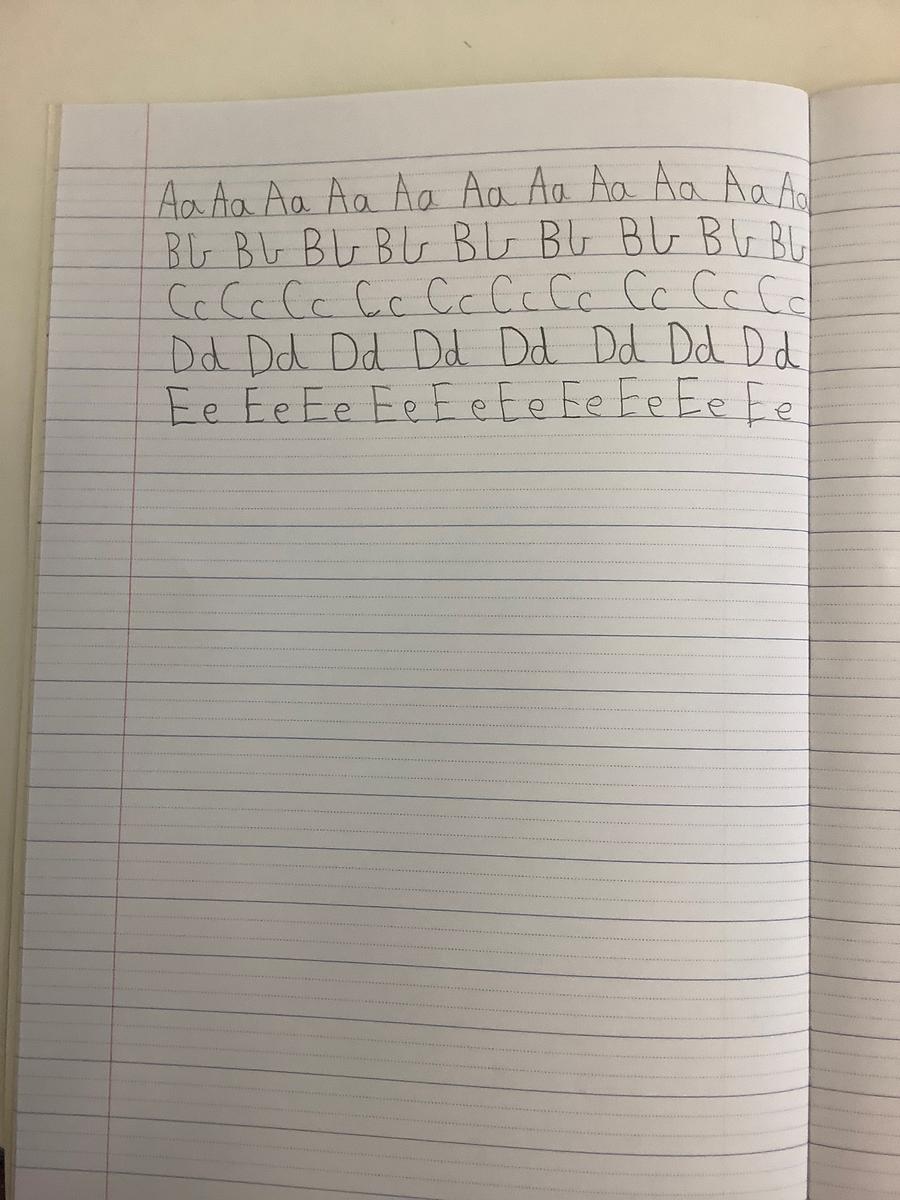 Aa Aa Aa Aa Aa Aa Aa Aa Aa Aa Aa
Bb Bb Bb Bb Bb Bb Bb Bb Bb
Cc Cc Cc Cc Cc Cc Cc Cc Cc Cc
Dd Dd Dd Dd Dd Dd Dd Dd
Ee Ee Ee Ee Ee Ee Ee Ee Ee Ee